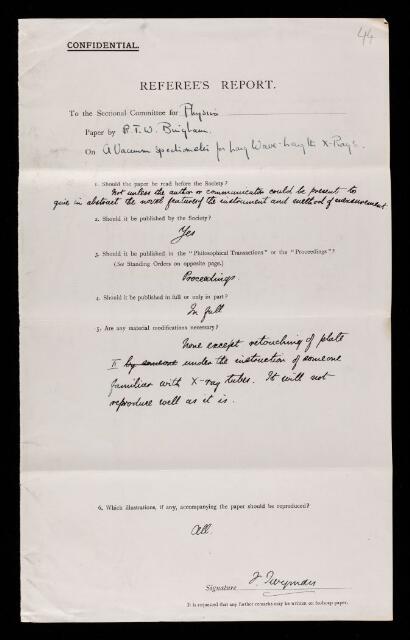 44
CONFIDENTIAL.
REFEREE'S REPORT.
To the Sectional Committee for Physics
Paper by R.T.W. Bingham.
On A Vacuum Spectrometer for Long Wave-length X-Rays.
1. Should the paper be read before the Society?
Not unless the author or communicator could be present to
give in abstract the novel features of the instrument and method of measurement.
2. Should it be published by the Society?
Yes
3. Should it be published in the "Philosophical Transactions" or the "Proceedings"?
(See Standing Orders on opposite page.)
Proceedings.
4. Should it be published in full or only in part?
In full
5. Are any material modifications necessary?
None except retouching of plate
II by someone under the instruction of someone
familiar with X-ray tubes. It will not
reproduce well as it is.
6. Which illustrations, if any, accompanying the paper should be reproduced?
All.
Signature F. Twyman
It is requested that any further remarks may be written on foolscap paper.